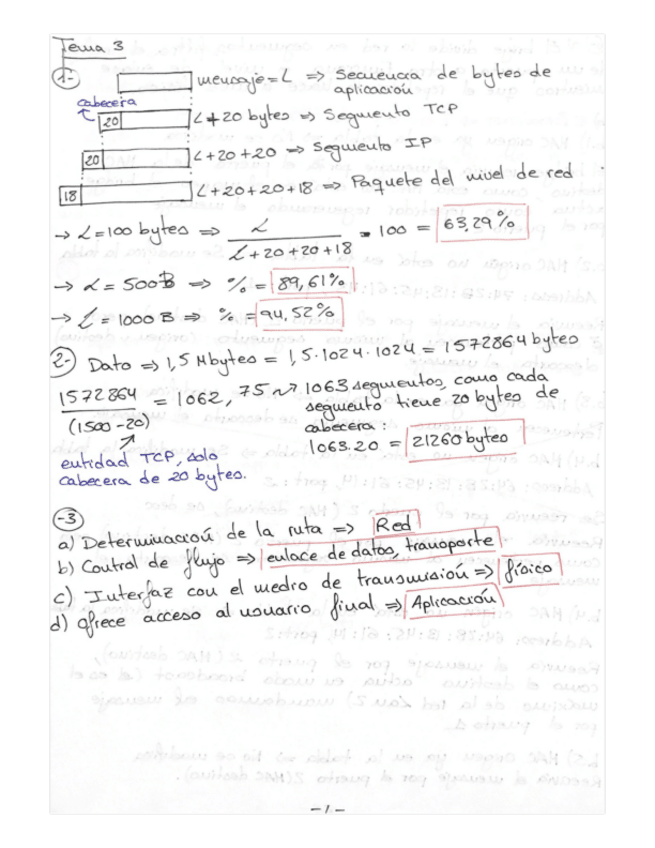 Tema 3
1- mensaje = L => Secuencia de bytes de
aplicación
cabecera
20 L+20 bytes => Segmento TCP
20 L+20+20 => Segmento IP
18 L+20+20+18 => Paquete del nivel de red
→ L=100 bytes => L / L+20+20+18 · 100 = 63,29%
→ L=500B => % = 89,61%
→ L=1000B => % = 94,52%
2- Dato => 1,5 Mbytes = 1,5·1024·1024 = 1572864 bytes
1572864 / (1500-20) = 1062,75 ~> 1063 segmentos, como cada
segmento tiene 20 bytes de
cabecera:
1063·20 = 21260 bytes
entidad TCP, solo
cabecera de 20 bytes.
-3
a) Determinación de la ruta => Red
b) Control de flujo => enlace de datos, transporte
c) Interfaz con el medio de transmisión => físico
d) Ofrece acceso al usuario final => Aplicación
-1-